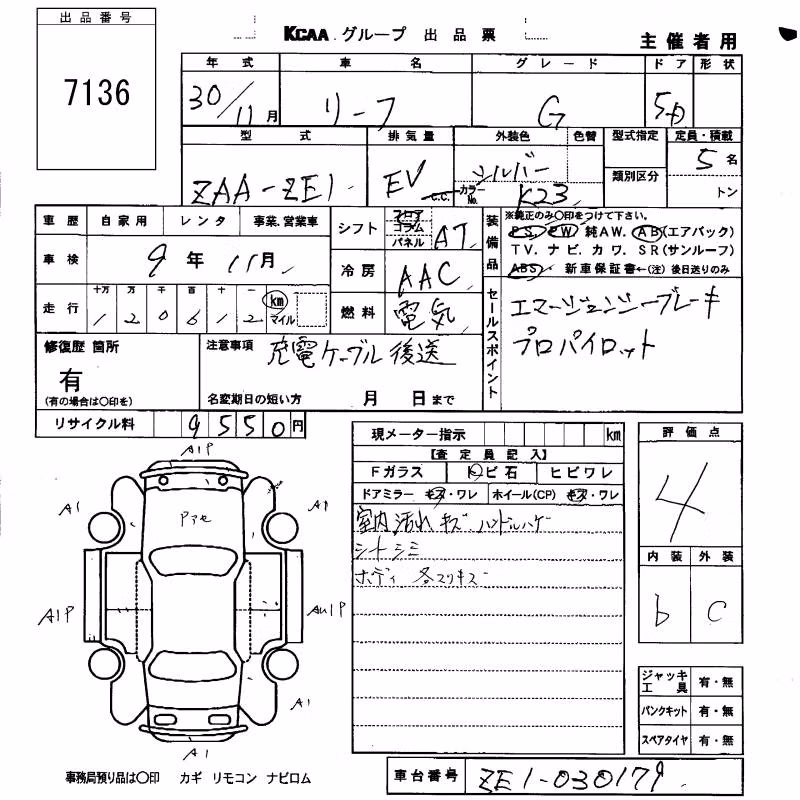 出品番号
7136
KCAA グループ 出品票
主催者用
年式 車名 グレード ドア 形状
30/11月 リーフ G 5D
型式 排気量 外装色 色替 型式指定 定員・積載
ZAA-ZE1 EV C.C. シルバー カラーNo. K23 類別区分 5名 トン
車歴 自家用 レンタ 事業、営業車
シフト フロア コラム パネル AT
装備品
※純正のみ○印をつけて下さい。
PS. PW 純AW. AB(エアバック)
TV. ナビ. カワ. SR(サンルーフ)
ABS. 新車保証書←(注) 後日送りのみ
車検 9年11月
冷房 AAC
走行 十万 万 千 百 十 一 km マイル
120612
燃料 電気
セールスポイント
エマージェンシーブレーキ
プロパイロット
修復歴 箇所
有
(有の場合は○印を)
注意事項 充電ケーブル後送
名変期日の短い方 月 日まで
リサイクル料 9550円
現メーター指示 km
【査定員記入】
Fガラス トビ石 ヒビワレ
ドアミラー キズ・ワレ ホイール(CP) キズ・ワレ
室内汚れ キズ ハンドルハゲ
シートシミ
ボディ 各スリキズ
評価点
4
内装 外装
b C
A1P
A1 A1
Pアセ
A1P AU1P
A1
A1
ジャッキ工具 有・無
パンクキット 有・無
スペアタイヤ 有・無
事務局預り品は○印 カギ リモコン ナビロム
車台番号 ZE1-030179